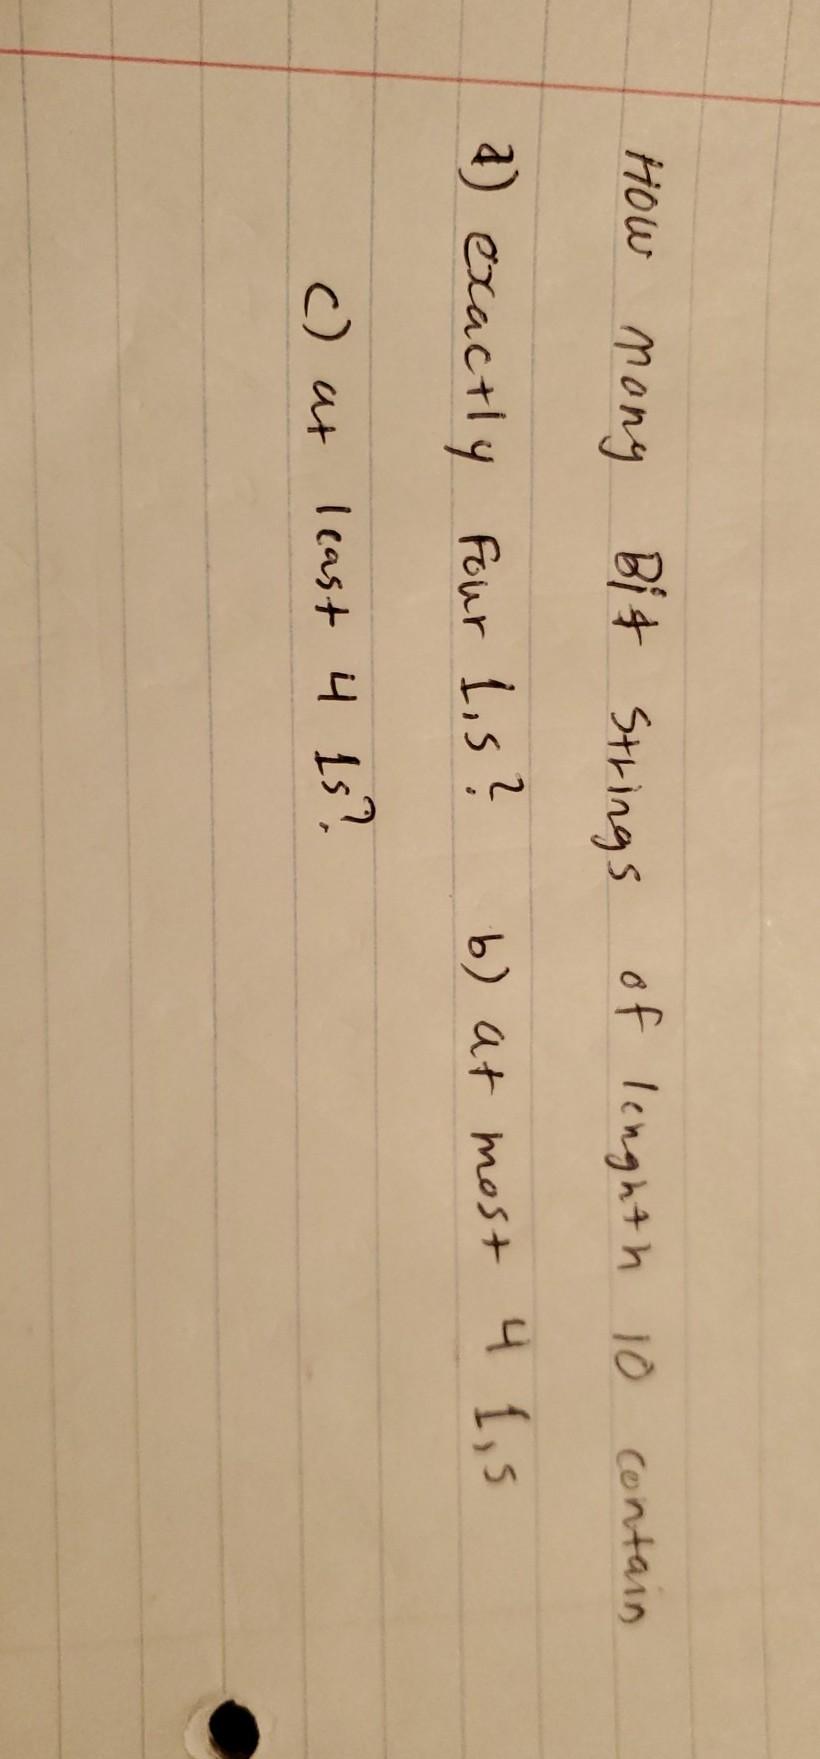 How many Bit strings of lenghth 10 contain
a) exactly four 1,s? b) at most 4 1,s
c) at least 4 1s?